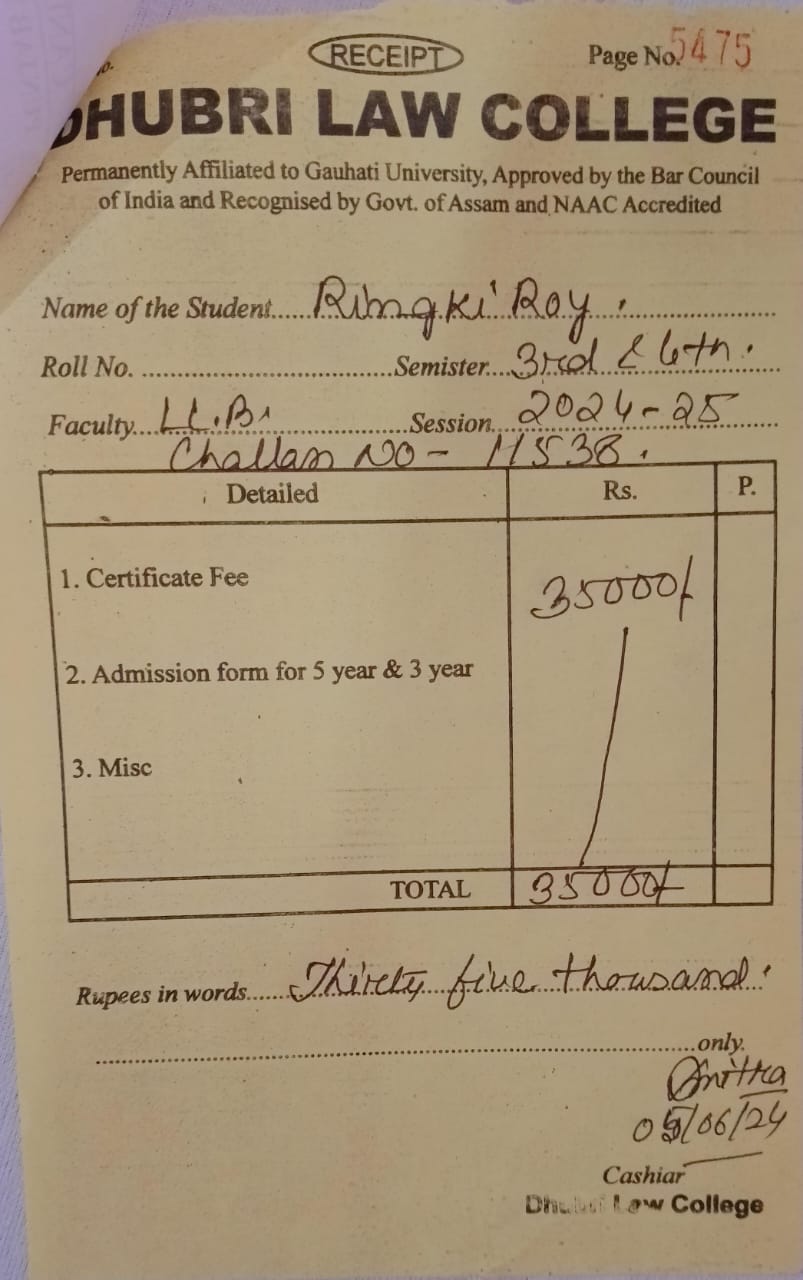 RECEIPT Page No. 5475
DHUBRI LAW COLLEGE
Permanently Affiliated to Gauhati University, Approved by the Bar Council
of India and Recognised by Govt. of Assam and NAAC Accredited
Name of the Student...... Ringki Roy.
Roll No. ........ Semister.... 3rd & 6th.
Faculty.... LL.B. ........ Session... 2024-25
Challan NO - 11538.
Detailed Rs. P.
1. Certificate Fee 35000/-
2. Admission form for 5 year & 3 year
3. Misc
TOTAL 35000/-
Rupees in words...... Thirty five thousand.
........only.
/06/24
Cashiar
Dhubri Law College